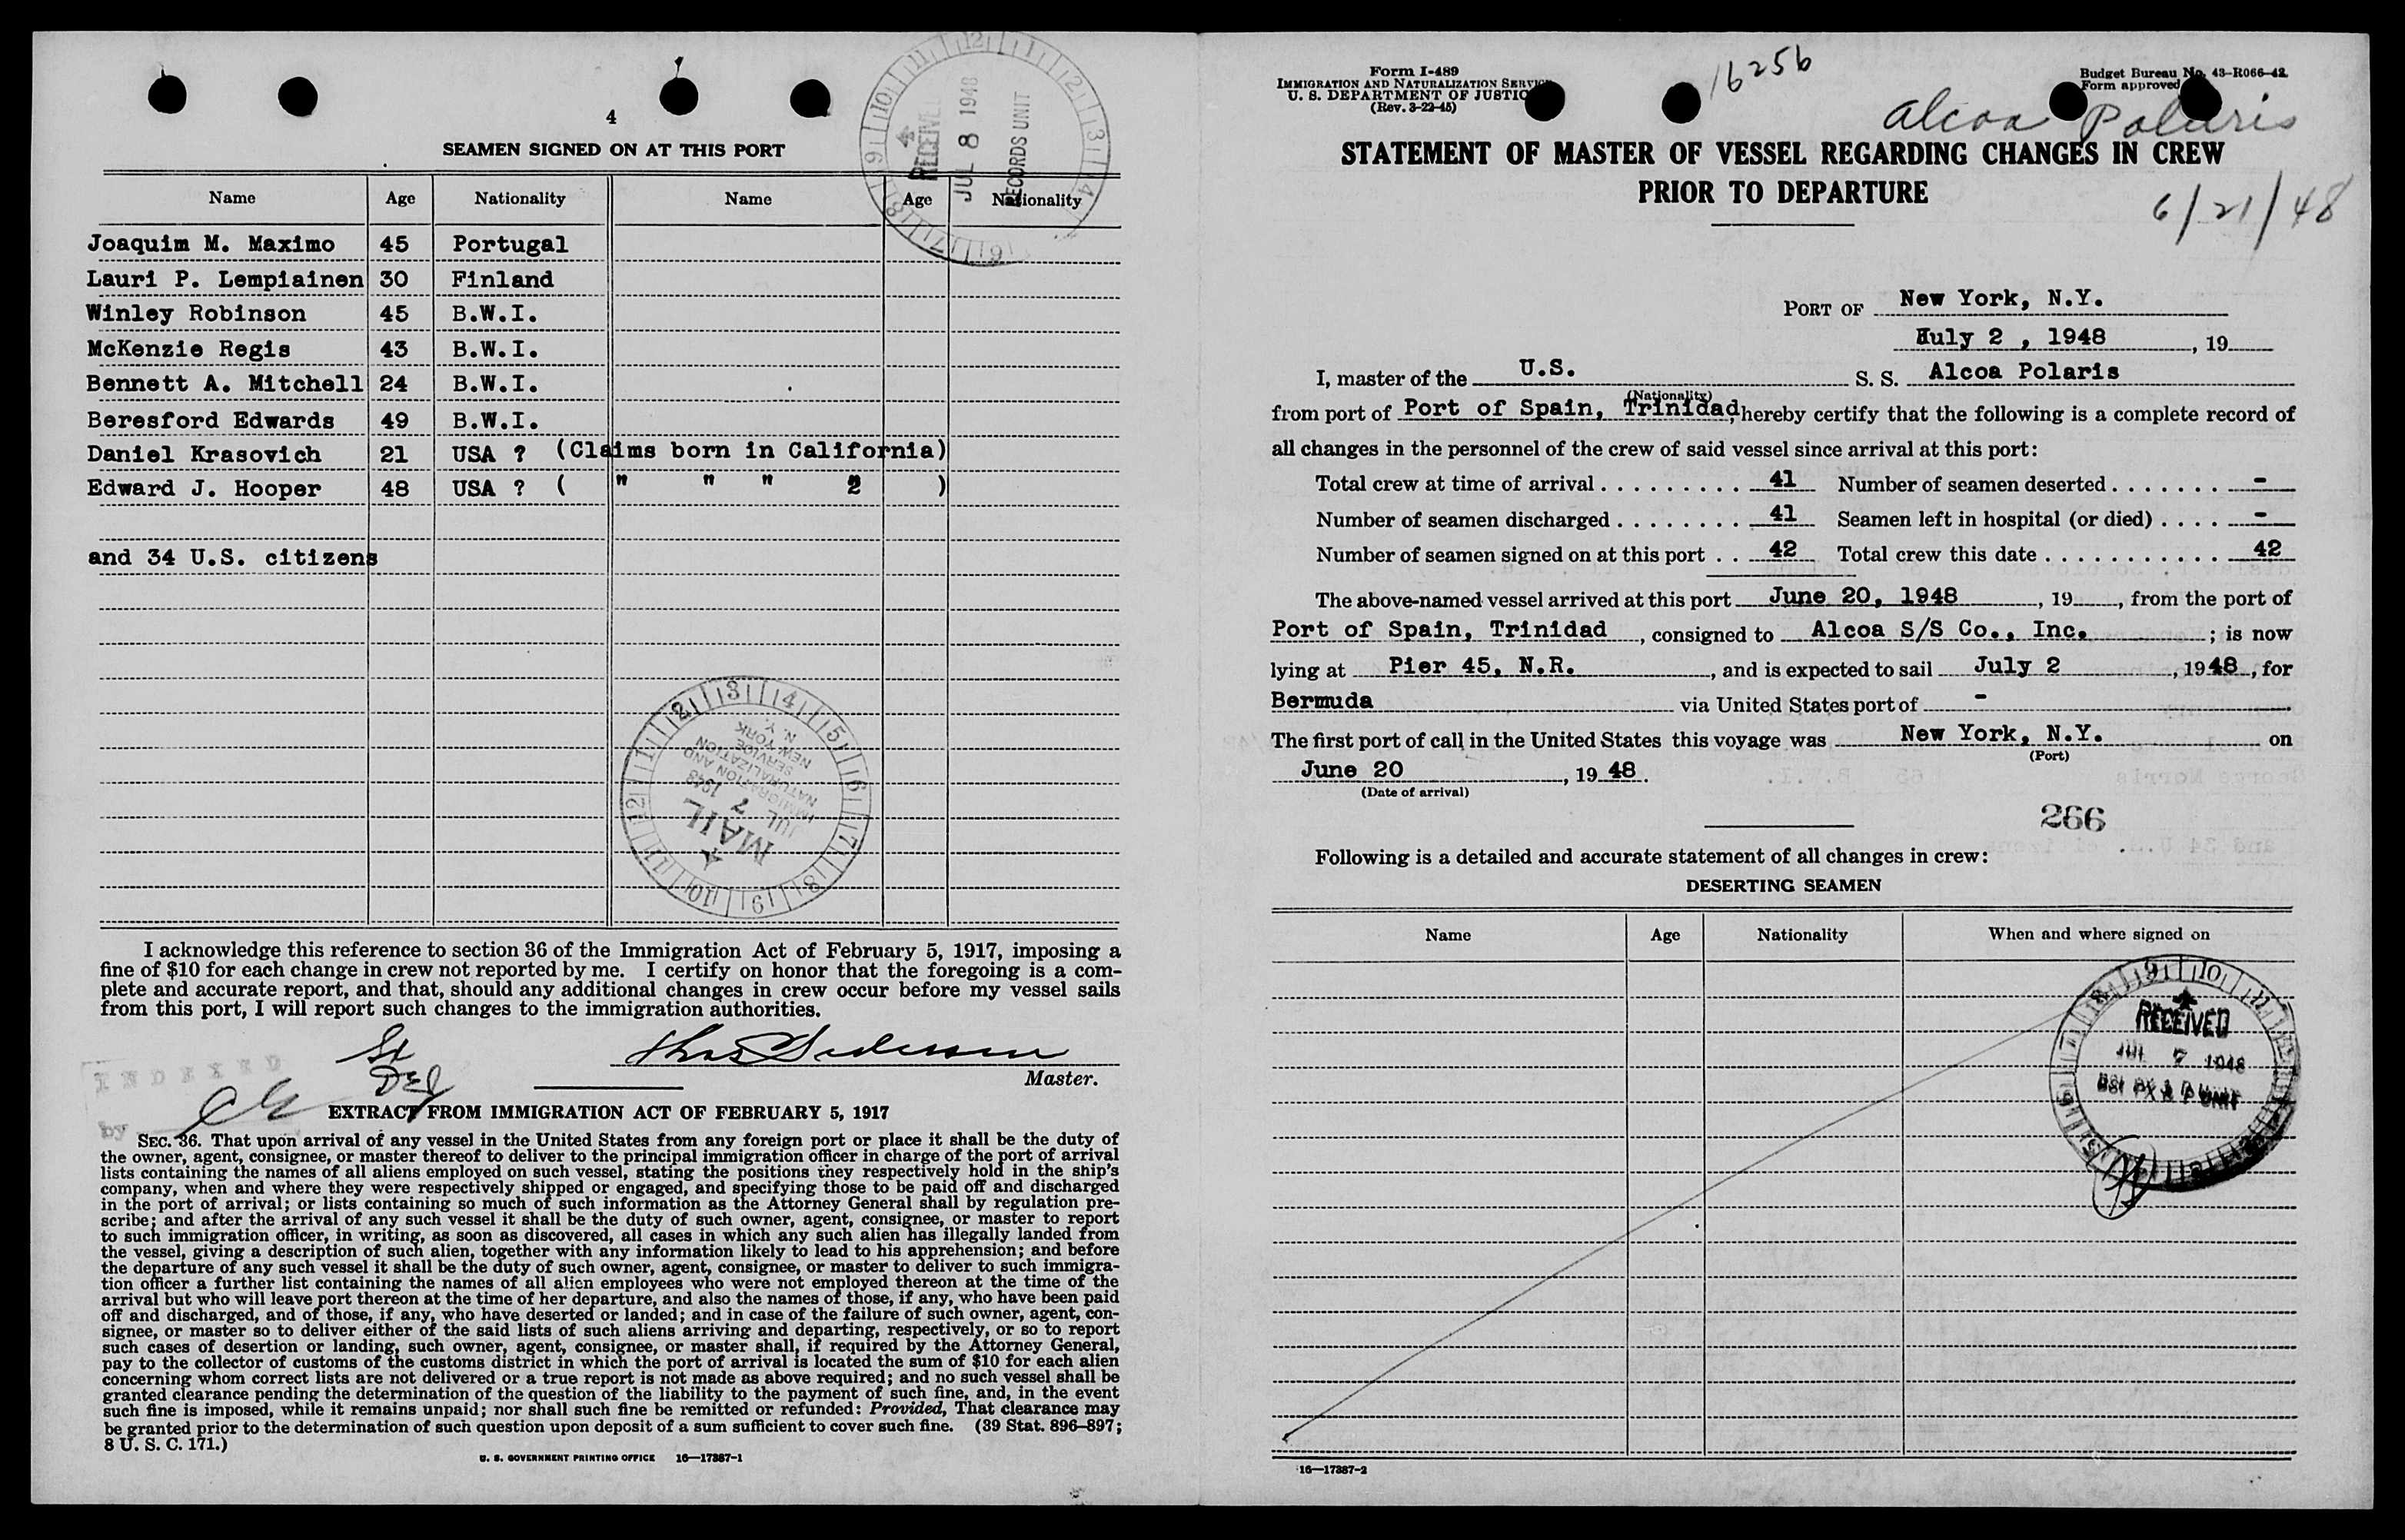 4
SEAMEN SIGNED ON AT THIS PORT
RECEIVED
JUL 8 1948
RECORDS UNIT
Name Age Nationality Name Age Nationality
Joaquim M. Maximo 45 Portugal
Lauri P. Lempiainen 30 Finland
Winley Robinson 45 B.W.I.
McKenzie Regis 43 B.W.I.
Bennett A. Mitchell 24 B.W.I.
Beresford Edwards 49 B.W.I.
Daniel Krasovich 21 USA ? (Claims born in California)
Edward J. Hooper 48 USA ? ( " " " " )
and 34 U.S. citizens
MAIL
JUL 7 1948
IMMIGRATION AND
NATURALIZATION
SERVICE
NEW YORK
N. Y.
I acknowledge this reference to section 36 of the Immigration Act of February 5, 1917, imposing a
fine of $10 for each change in crew not reported by me. I certify on honor that the foregoing is a com-
plete and accurate report, and that, should any additional changes in crew occur before my vessel sails
from this port, I will report such changes to the immigration authorities.
Master.
INDEXED
by
EXTRACT FROM IMMIGRATION ACT OF FEBRUARY 5, 1917
SEC. 36. That upon arrival of any vessel in the United States from any foreign port or place it shall be the duty of
the owner, agent, consignee, or master thereof to deliver to the principal immigration officer in charge of the port of arrival
lists containing the names of all aliens employed on such vessel, stating the positions they respectively hold in the ship's
company, when and where they were respectively shipped or engaged, and specifying those to be paid off and discharged
in the port of arrival; or lists containing so much of such information as the Attorney General shall by regulation pre-
scribe; and after the arrival of any such vessel it shall be the duty of such owner, agent, consignee, or master to report
to such immigration officer, in writing, as soon as discovered, all cases in which any such alien has illegally landed from
the vessel, giving a description of such alien, together with any information likely to lead to his apprehension; and before
the departure of any such vessel it shall be the duty of such owner, agent, consignee, or master to deliver to such immigra-
tion officer a further list containing the names of all alien employees who were not employed thereon at the time of the
arrival but who will leave port thereon at the time of her departure, and also the names of those, if any, who have been paid
off and discharged, and of those, if any, who have deserted or landed; and in case of the failure of such owner, agent, con-
signee, or master so to deliver either of the said lists of such aliens arriving and departing, respectively, or so to report
such cases of desertion or landing, such owner, agent, consignee, or master shall, if required by the Attorney General,
pay to the collector of customs of the customs district in which the port of arrival is located the sum of $10 for each alien
concerning whom correct lists are not delivered or a true report is not made as above required; and no such vessel shall be
granted clearance pending the determination of the question of the liability to the payment of such fine, and, in the event
such fine is imposed, while it remains unpaid; nor shall such fine be remitted or refunded: Provided, That clearance may
be granted prior to the determination of such question upon deposit of a sum sufficient to cover such fine. (39 Stat. 896–897;
8 U. S. C. 171.)
U. S. GOVERNMENT PRINTING OFFICE 16—17387-1
Form I-489
IMMIGRATION AND NATURALIZATION SERVICE
U. S. DEPARTMENT OF JUSTICE
(Rev. 3-22-45)
16256
Budget Bureau No. 43-R066-42
Form approved
Alcoa Polaris
STATEMENT OF MASTER OF VESSEL REGARDING CHANGES IN CREW
PRIOR TO DEPARTURE
6/21/48
PORT OF New York, N.Y.
July 2 , 1948 , 19
I, master of the U.S. S. S. Alcoa Polaris
(Nationality)
from port of Port of Spain, Trinidad, hereby certify that the following is a complete record of
all changes in the personnel of the crew of said vessel since arrival at this port:
Total crew at time of arrival . . . . . . . . . 41 Number of seamen deserted . . . . . . . -
Number of seamen discharged . . . . . . . . 41 Seamen left in hospital (or died) . . . . -
Number of seamen signed on at this port . . 42 Total crew this date . . . . . . . . . . . 42
The above-named vessel arrived at this port June 20, 1948 , 19 , from the port of
Port of Spain, Trinidad , consigned to Alcoa S/S Co., Inc. ; is now
lying at Pier 45, N.R. , and is expected to sail July 2 , 1948 , for
Bermuda via United States port of -
The first port of call in the United States this voyage was New York, N.Y. on
(Port)
June 20 , 19 48.
(Date of arrival)
266
Following is a detailed and accurate statement of all changes in crew:
DESERTING SEAMEN
Name Age Nationality When and where signed on
RECEIVED
JUL 7 1948
16—17387-2